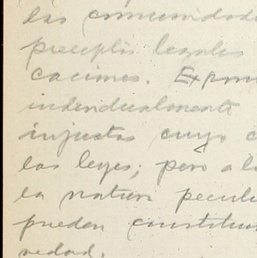 las comunidad
preceptos legales
caciones. Expro
individualmente
injustas cuyo c
las leyes; pero a l
la natura peculi
puedan constitu
vedad.